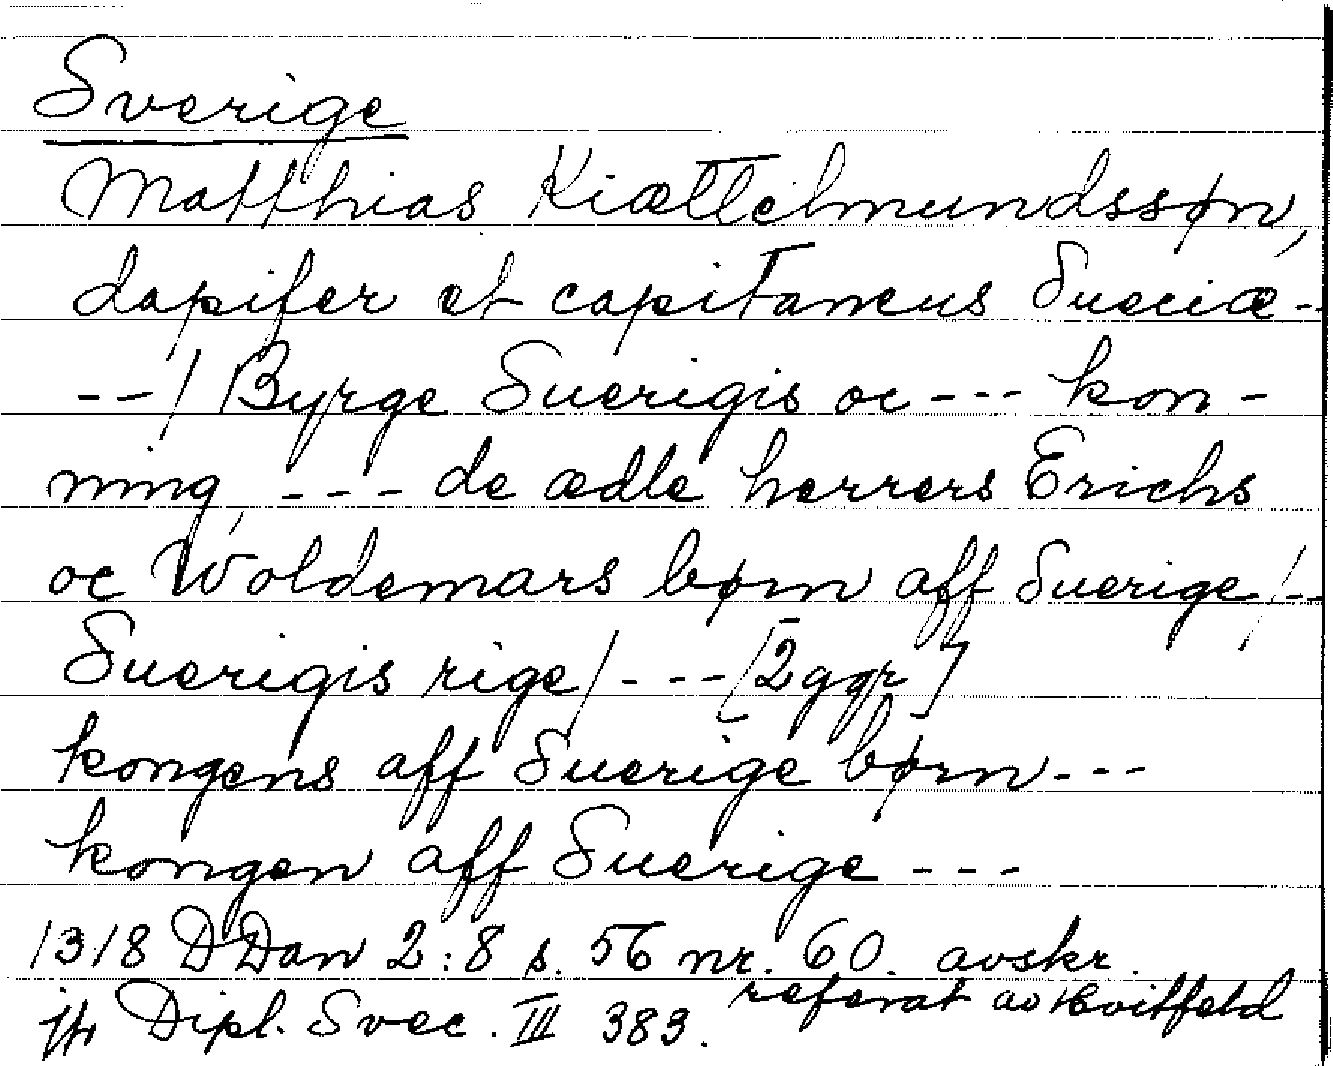 Sverige
Matthias Kiættelmundssøn,
dapifer et capitaneus Sueciæ -
-- / Byrge Suerigis oc --- kon-
ning, --- de ædle herrers Erichs
oc Woldemars børn aff Suerige / --
Suerigis rige / --- [2ggr]
kongens aff Suerige børn ---
kongen aff Suerige ---
1318 DDan 2:8 s. 56 nr. 60. avskr.
referat av Hvitfeld
jfr Dipl. Svec. III 383.